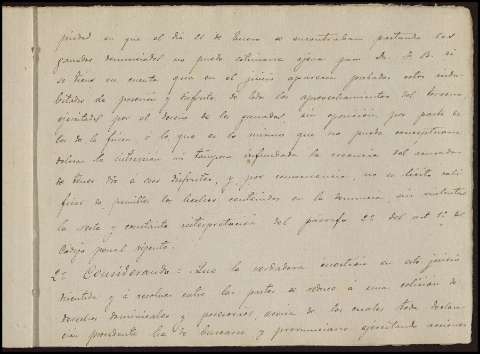 piedad en que el día 21 de Enero se encontraban pastando los
ganados denunciados no puede estimarse ajena para D. F. B. si
se tiene en cuenta que en el juicio aparecen probados actos indu-
bitados de posesión y disfrute de todo los aprovechamientos del terreno
ejecutados por el dueño de los ganados, sin oposición por parte
los de la finca o lo que es lo mismo que no puede conceptuarse
dolosa la intención ni tampoco infundada la creencia del
de tener dro á sus disfrutes, y por consecuencia, no es lícito cali-
ficar de punibles los hechos contenidos en la denuncia, sin violentar
la recta y constante interpretación del párrafo 2º del art. 1º del
Código penal vigente.
2º Considerando: Que la verdadera cuestión en este juicio
y á resolver entre las partes se reduce á una colisión de
derechos dominicales y posesorios, acerca de los cuales toda declara-
ción procedente ha de buscarse y pronunciarse ejercitando acciones